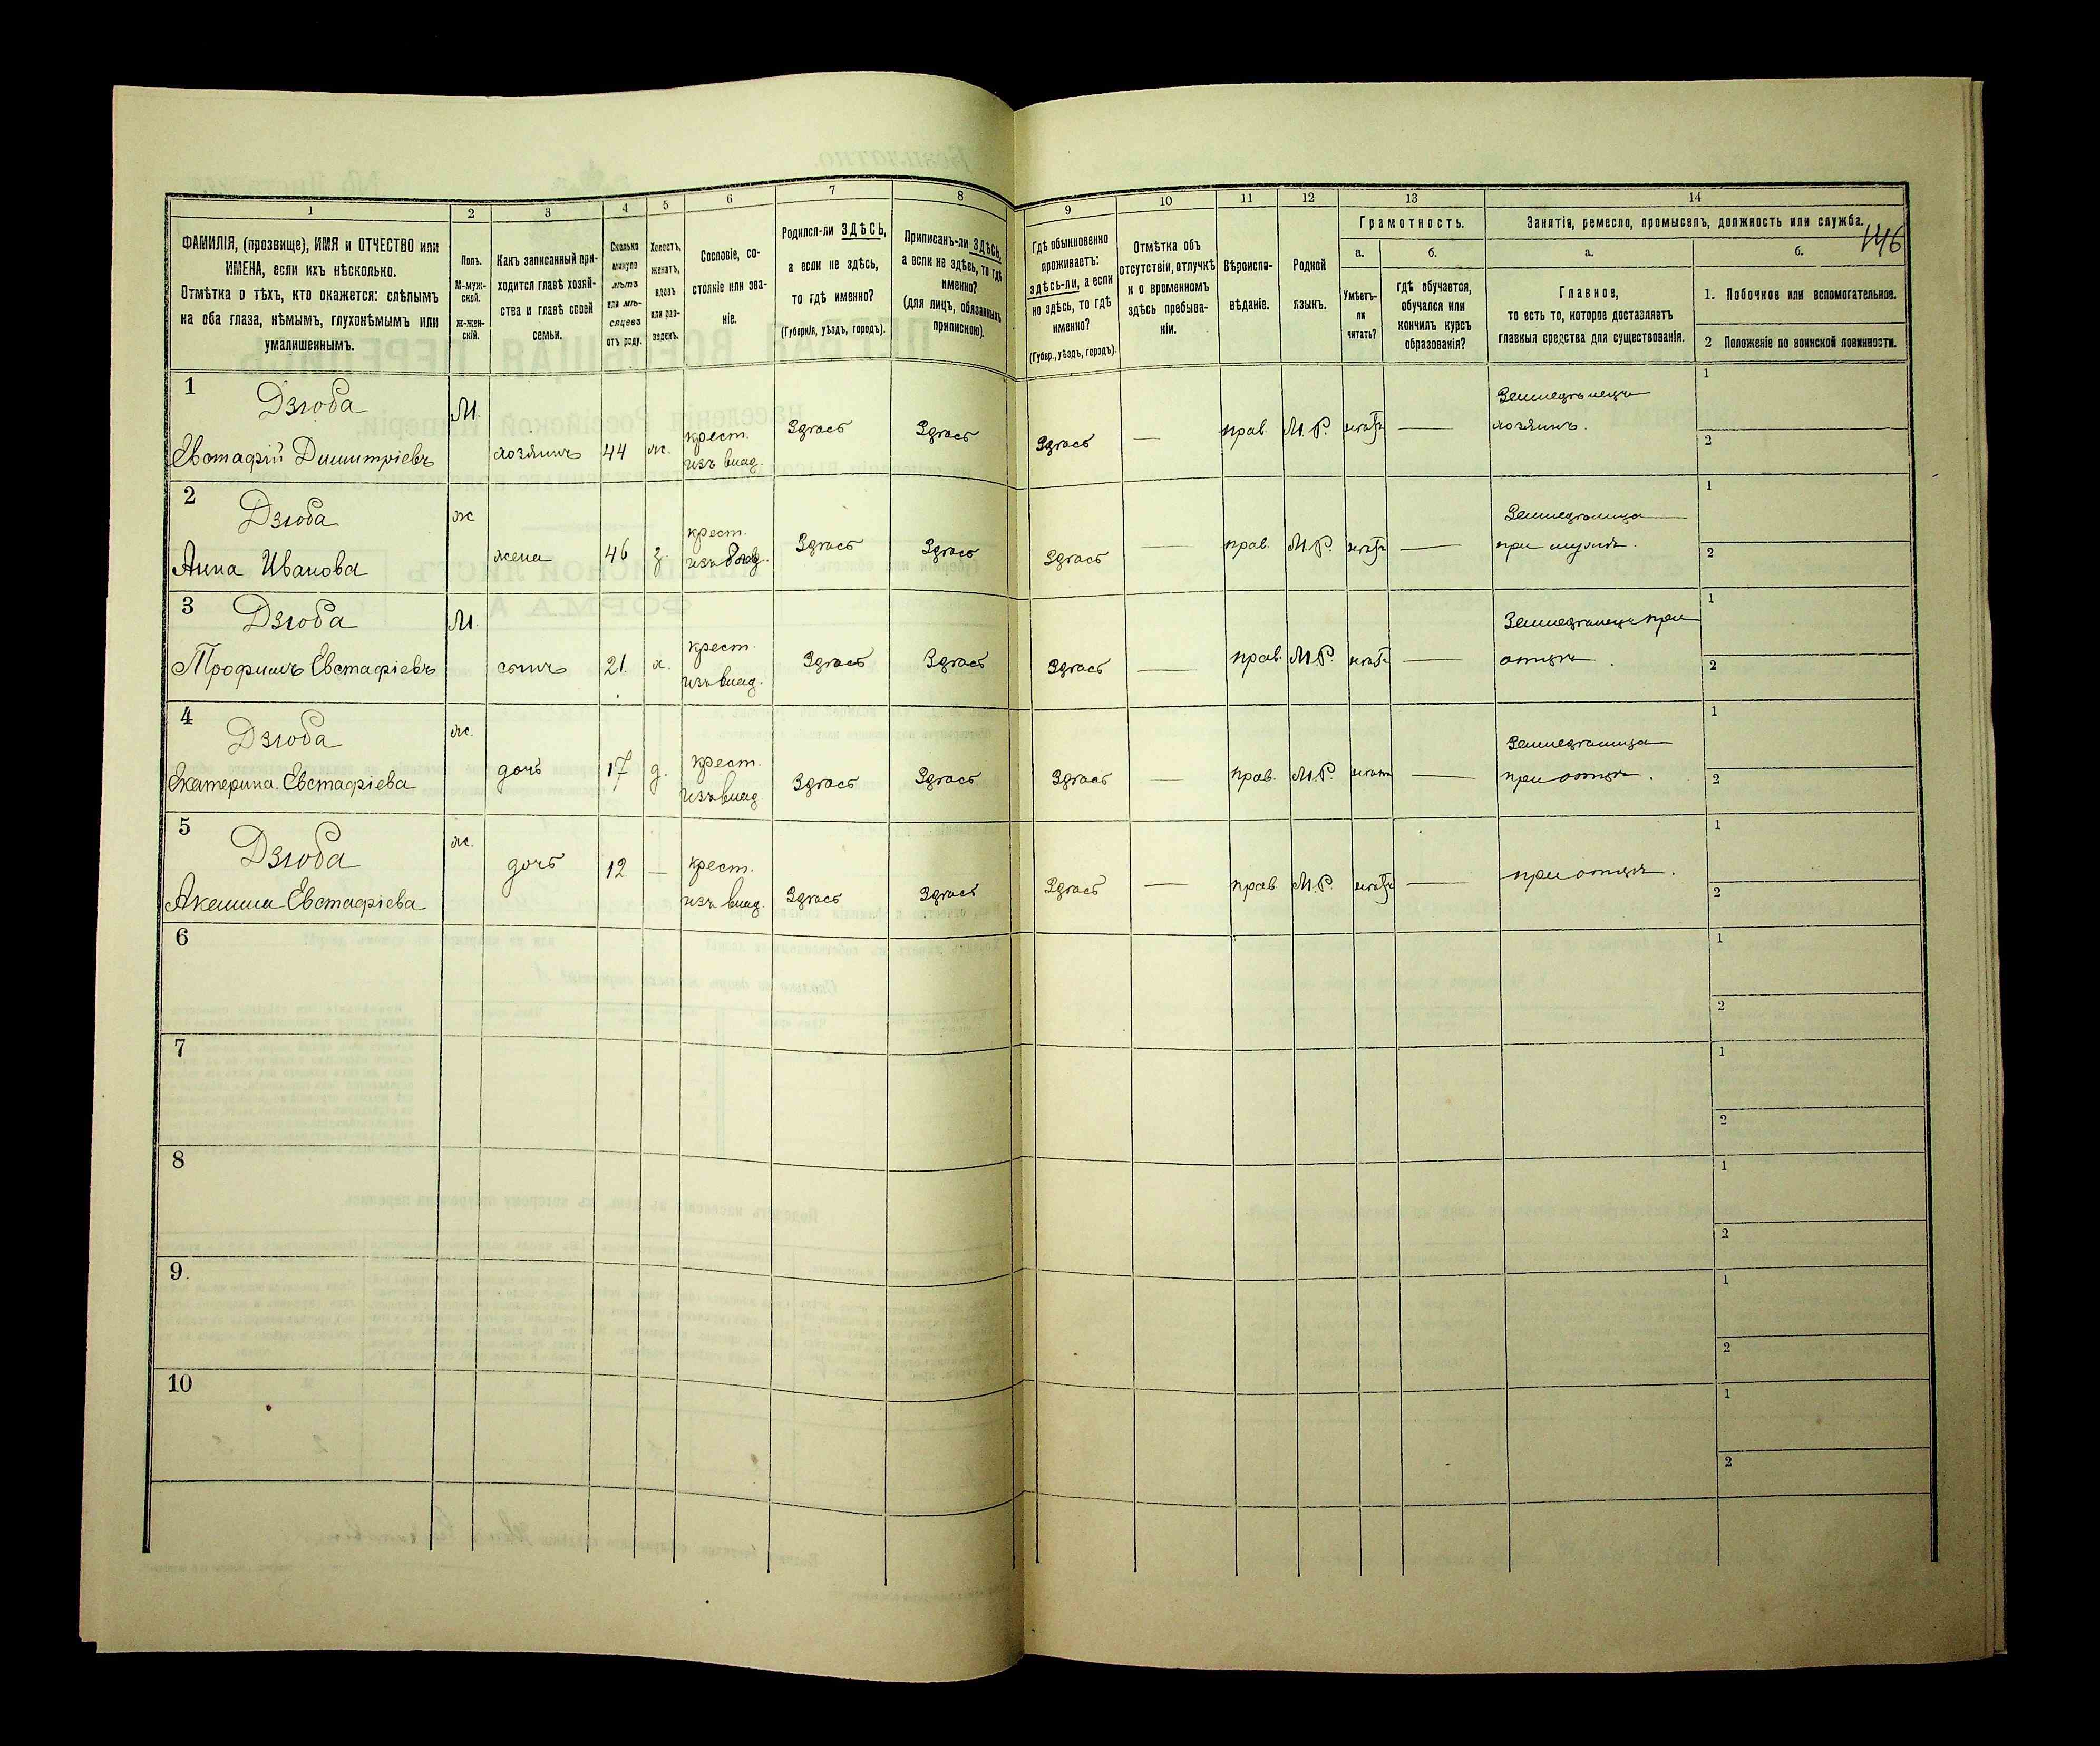 146
1 2 3 4 5 6 7 8 9 10 11 12 13 14
ФАМИЛІЯ, (прозвище), ИМЯ и ОТЧЕСТВО или
ИМЕНА, если ихъ нѣсколько.
Отмѣтка о тѣхъ, кто окажется: слѣпымъ
на оба глаза, нѣмымъ, глухонѣмымъ или
умалишеннымъ.
Полъ.
М-муж-
ской.
Ж-жен-
скій.
Какъ записанный при-
ходится главѣ хозяй-
ства и главѣ своей
семьи.
Сколько
минуло
лѣтъ
или мѣ-
сяцевъ
отъ роду.
Холостъ,
женатъ,
вдовъ
или раз-
веденъ.
Сословіе, со-
стояніе или зва-
ніе.
Родился-ли ЗДѢСЬ,
а если не здѣсь,
то гдѣ именно?
(Губернія, уѣздъ, городъ).
Приписанъ-ли ЗДѢСЬ,
а если не здѣсь, то гдѣ
именно?
(для лицъ, обязанныхъ
припискою).
Гдѣ обыкновенно
проживаетъ:
здѣсь-ли, а если
не здѣсь, то гдѣ
именно?
(Губер., уѣздъ, городъ).
Отмѣтка объ
отсутствіи, отлучкѣ
и о временномъ
здѣсь пребыва-
ніи.
Вѣроиспо-
вѣданіе.
Родной
языкъ.
Грамотность.
а.
Умѣетъ-
ли
читать?
б.
гдѣ обучается,
обучался или
кончилъ курсъ
образованія?
Занятія, ремесло, промыселъ, должность или служба.
а.
Главное,
то есть то, которое доставляетъ
главныя средства для существованія.
б.
1. Побочное или вспомогательное.
2 Положеніе по воинской повинности.
1 Дзюба М Земледѣлецъ 1
Евстафій Димитріевъ хозяинъ 44 ж. крест. Здѣсь Здѣсь Здѣсь — прав. М. Р. нѣтъ — хозяинъ. 2
изъ влад.
2 Дзюба ж Земледѣлица 1
Анна Иванова жена 46 з. крест. Здѣсь Здѣсь Здѣсь — прав. М. Р. нѣтъ — при мужѣ. 2
изъ влад.
3 Дзюба М. Земледѣлецъ при 1
Трофимъ Евстафіевъ сынъ 21. х. крест. Здѣсь Здѣсь Здѣсь — прав. М. Р. нѣтъ — отцѣ. 2
изъ влад.
4 Дзюба ж. Земледѣлица 1
Екатерина Евстафіева дочь 17 д. крест. Здѣсь Здѣсь Здѣсь — прав. М. Р. нѣтъ — при отцѣ. 2
изъ влад.
5 Дзюба ж. 1
Акилина Евстафіева дочь 12 — крест. Здѣсь Здѣсь Здѣсь — прав. М. Р. нѣтъ — при отцѣ. 2
изъ влад.
6 1
2
7 1
2
8 1
2
9. 1
2
10 1
2